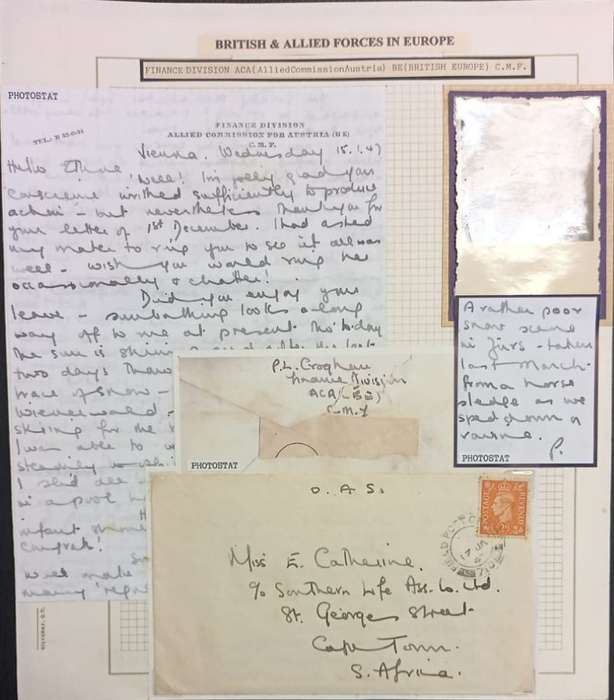 BRITISH & ALLIED FORCES IN EUROPE
FINANCE DIVISION ACA(AlliedCommissionAustria) BE(BRITISH EUROPE) C.M.F.
PHOTOSTAT
FINANCE DIVISION
ALLIED COMMISSION FOR AUSTRIA (BE)
C.M.F.
Vienna. Wednesday 15.1.47
Hello
Well! I'm jolly glad your
conscience writhed sufficiently to produce
action - but nevertheless thank you for
your letter of 1st December. I had asked
my mater to ring you to see if all was
well - wish you would ring her
occasionally & chatter!
Did you enjoy your
leave - sunbathing looks a long
way off to me at present tho' today
the sun is
two days
trace of snow -
skiing for the
I was able to
I
in a pool
infant
Congrats!
will make
many
A rather poor
snow scene
in Zürs - taken
last March
from a horse
sledge as we
sped down a
ravine.
P.
PHOTOSTAT
P.L. Croghan
Finance Division
ACA (BE)
C.M.F
PHOTOSTAT
O.A.S.
POSTAGE REVENUE
FIELD POST
Miss E. Catherine.
c/o Southern Life Ass. Co. Ltd.
St. Georges Street
Cape Town.
S. Africa.